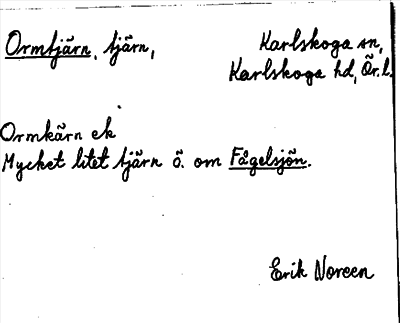 Ormtjärn, tjärn, Karlskoga sn,
Karlskoga hd, Ör. l.
Ormkärn ek
Mycket litet tjärn ö. om Fågelsjön.
Erik Noreen